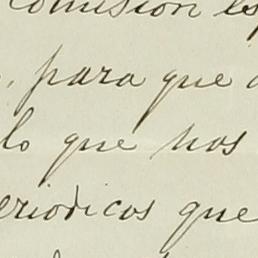 comision es
, para que
lo que nos
eriodicos que